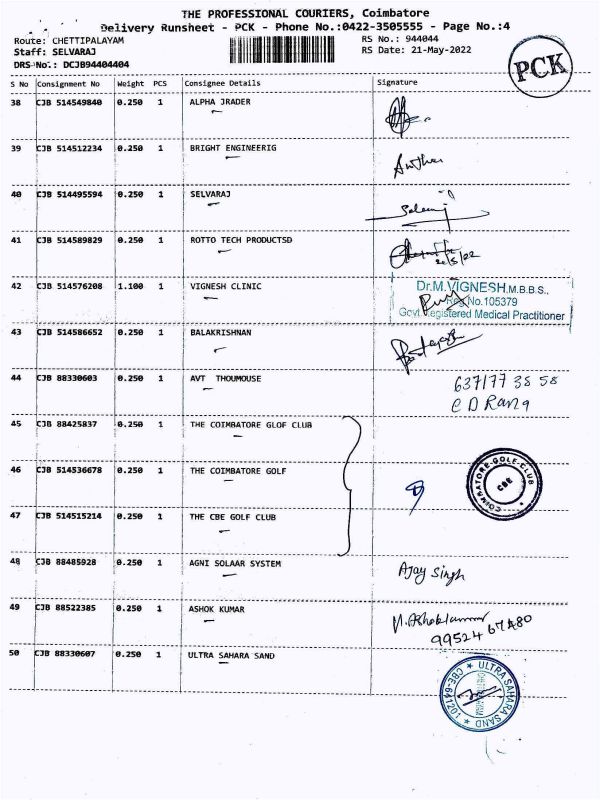 THE PROFESSIONAL COURIERS, Coimbatore
Delivery Runsheet - PCK - Phone No.:0422-3505555 - Page No.:4
Route: CHETTIPALAYAM RS No.: 944044
Staff: SELVARAJ RS Date: 21-May-2022
DRS No.: DCJB94404404
PCK
S No Consignment No Weight PCS Consignee Details Signature
38 CJB 514549840 0.250 1 ALPHA JRADER
39 CJB 514512234 0.250 1 BRIGHT ENGINEERIG
40 CJB 514495594 0.250 1 SELVARAJ
41 CJB 514589829 0.250 1 ROTTO TECH PRODUCTSD
42 CJB 514576208 1.100 1 VIGNESH CLINIC
Dr.M.VIGNESH,M.B.B.S.,
Reg No.105379
Govt. Registered Medical Practitioner
43 CJB 514586652 0.250 1 BALAKRISHNAN
44 CJB 88330603 0.250 1 AVT THOUMOUSE
637177 38 58
45 CJB 88425837 0.250 1 THE COIMBATORE GLOF CLUB
46 CJB 514536678 0.250 1 THE COIMBATORE GOLF
COIMBATORE-GOLF-CLUB
CBE
47 CJB 514515214 0.250 1 THE CBE GOLF CLUB
48 CJB 88485928 0.250 1 AGNI SOLAAR SYSTEM Ajay Singh
49 CJB 88522385 0.250 1 ASHOK KUMAR
99524 67480
50 CJB 88330607 0.250 1 ULTRA SAHARA SAND
ULTRA SAHARA SAND
CBE-641201